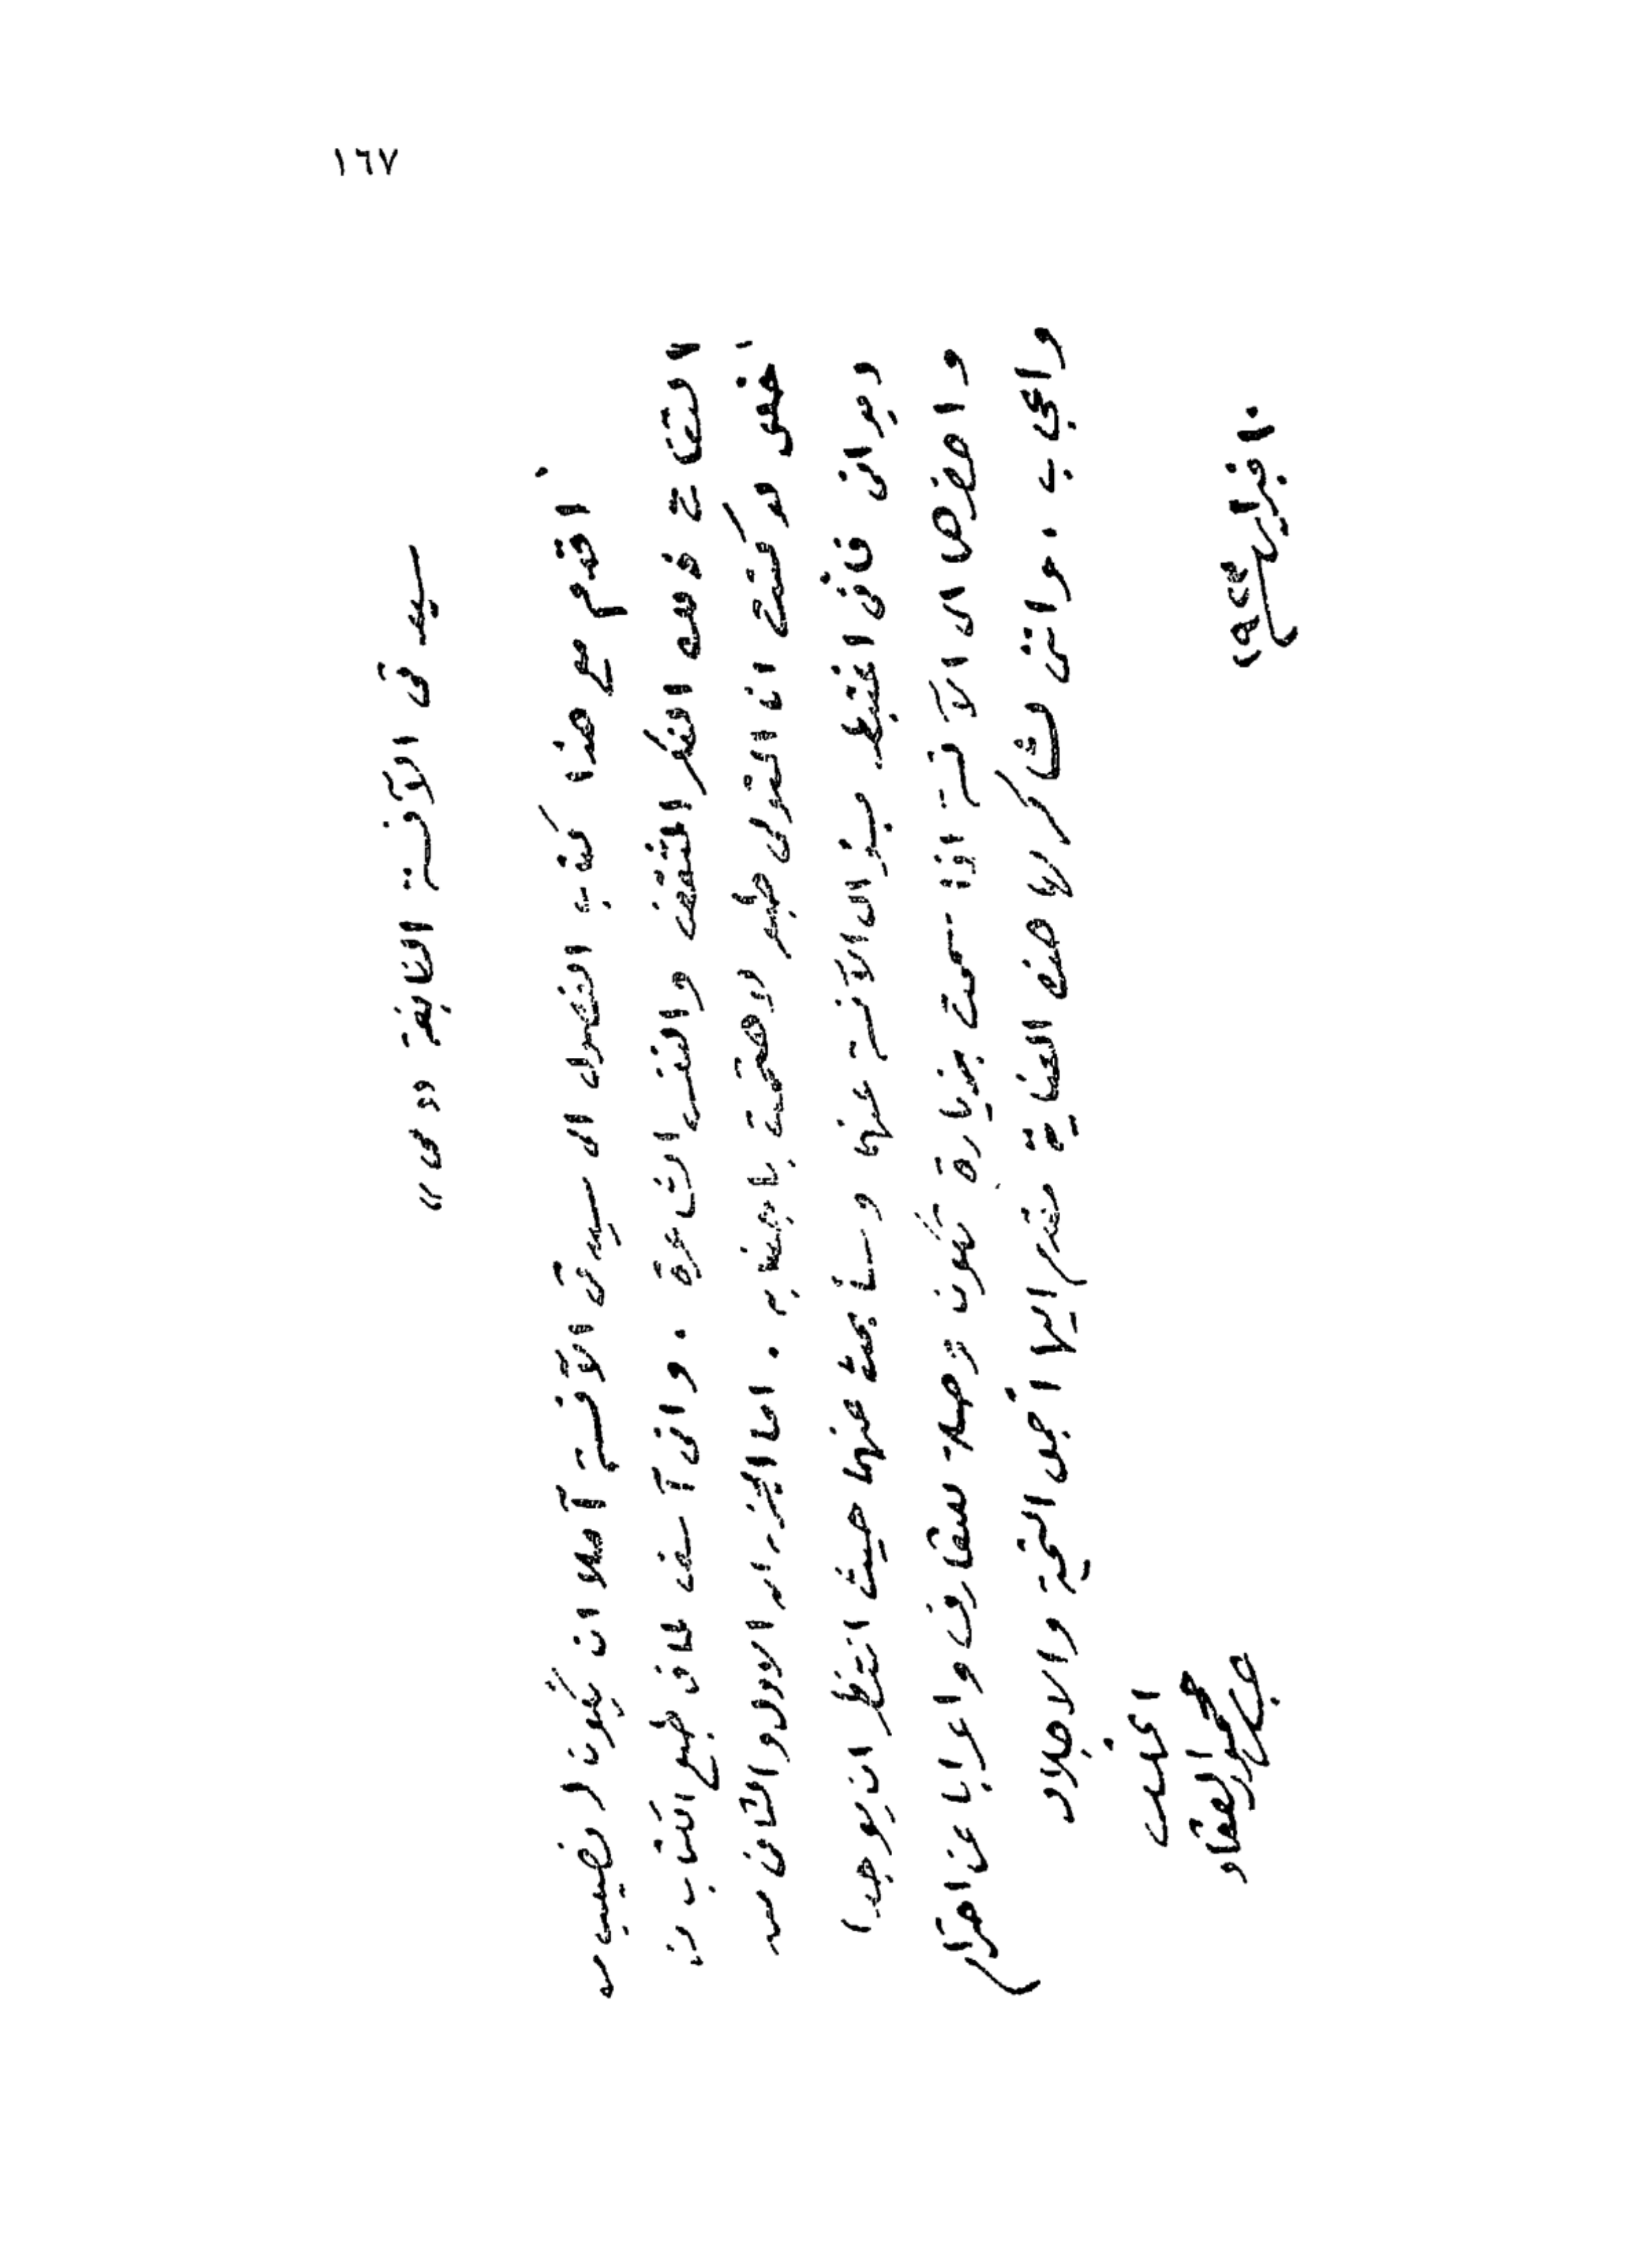 ١٦٧
سيدتى الآنسة النابغة «مى»
أقدم مع هذا كتاب الفصول الى سيدتى الآنسة آملا ان يكون له نصيب من
التفات ذهنه الفكر المثقف والنفس الشاعرة . وانى آسف لحاق طبع الكتاب فـ
أخجل لو كنت انا المتولى طبعه لاهتممت باجتنابه . اما الجزءان الاول والثانى من
ديوانى فانى اغتبط بسؤال الآنسة عنهما وسأبحث عنهما حيث انتظر ان يوجدا
واحضرهما الى الآنسة اذا سمحت بزيارة تكون وصلة للتعارف واعرابا عن احترام
واعجاب . واننى شاكر لها هذه العناية مقدم اليها أجمل التحية والاجلال
المخلص
عباس محمود العقاد
١٠ فبراير ١٩٢٣